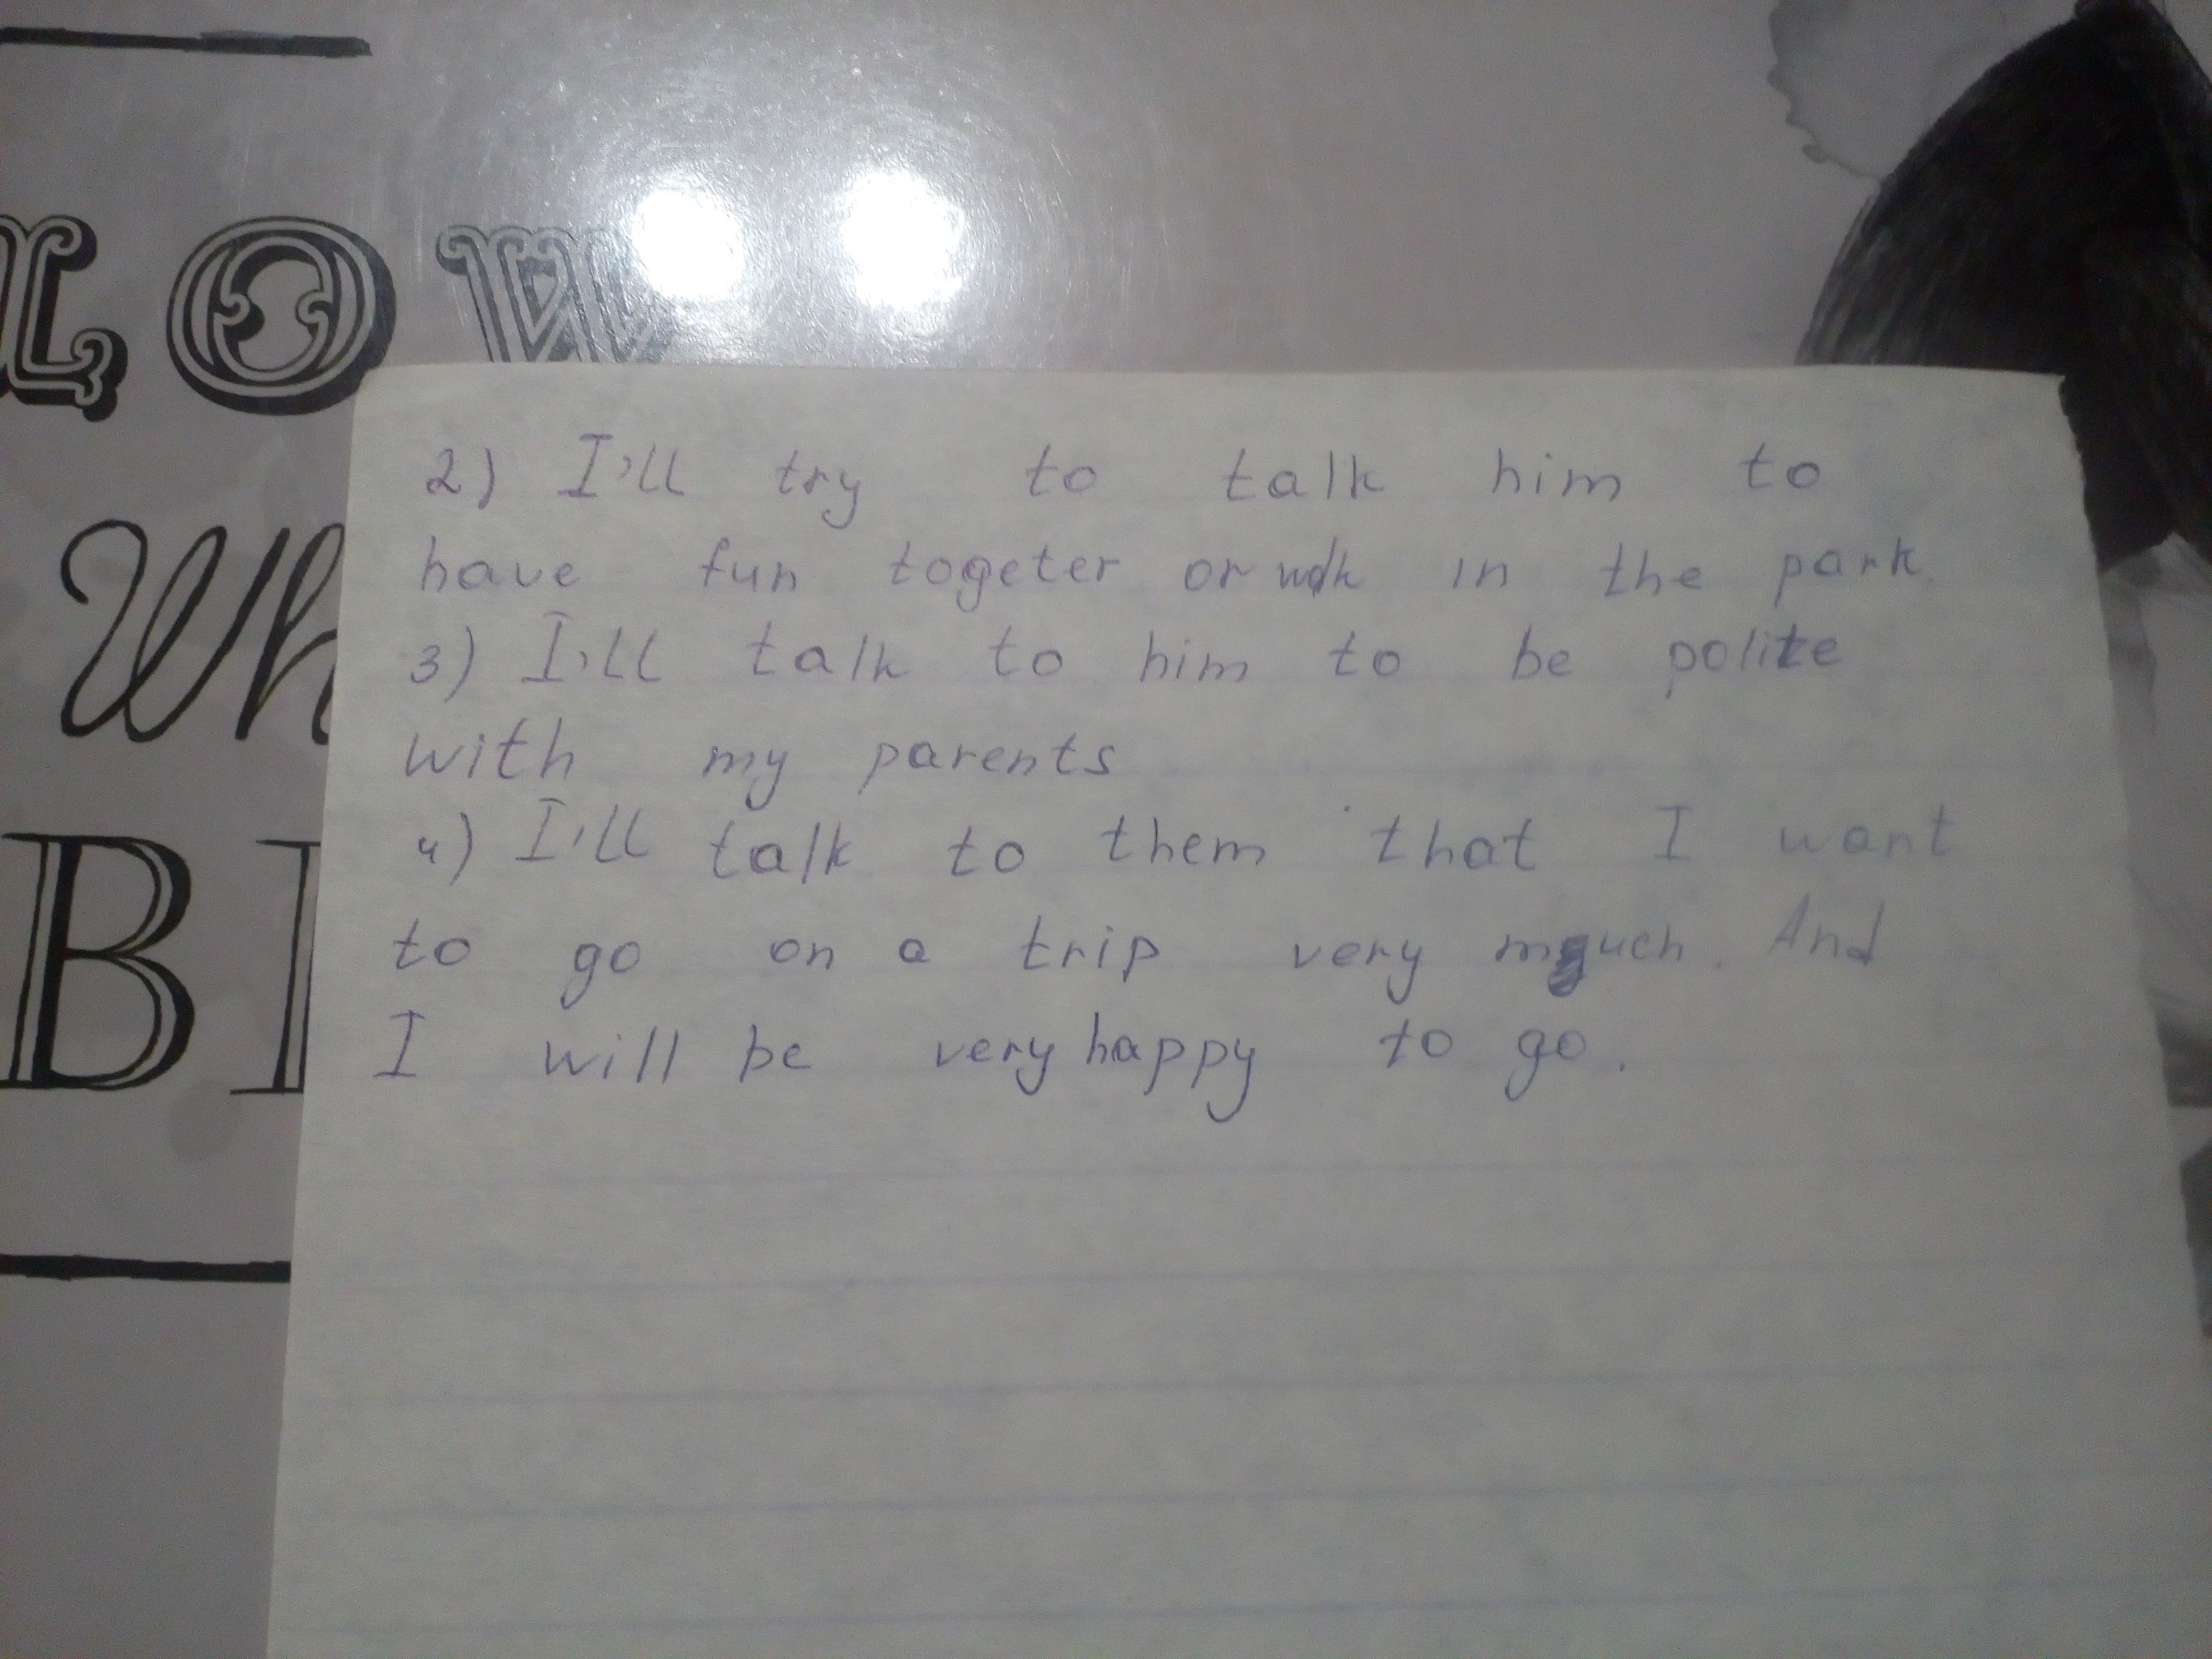 LOW
Wh
B
2) I'll try to talk him to
have fun togeter or walk in the park
3) I'll talk to him to be polite
with my parents
4) I'll talk to them that I want
to go on a trip very much. And
I will be very happy to go.